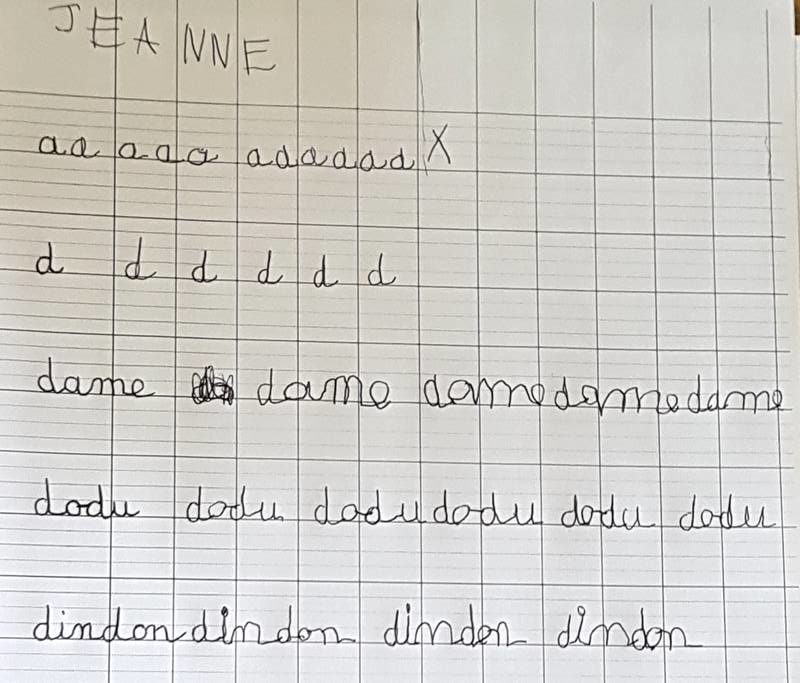 JEANNE
aa aaa aaaaaa X
d d d d d d
dame dame dame dame dame
dodu dodu dodu dodu dodu dodu
dindon dindon dindon dindon